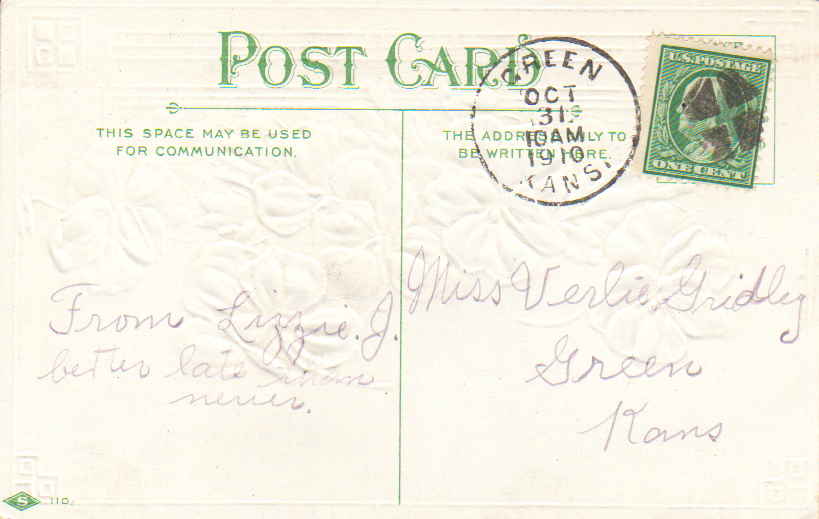 POST CARD
THIS SPACE MAY BE USED
FOR COMMUNICATION.
THE ADDRESS ONLY TO
BE WRITTEN HERE.
GREEN
OCT
31
10AM
1910
KANS.
U.S. POSTAGE
ONE CENT
From Lizzie. J.
better late than
never.
Miss Verlie Gridley
Green
Kans
S 110